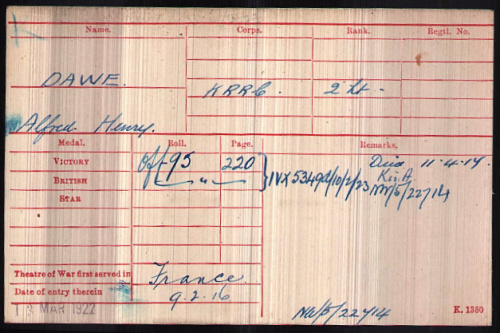 Name. Corps. Rank. Regtl. No.
DAWE.
KRRC. 2 Lt.
Alfred Henry.
Medal. Roll. Page. Remarks.
VICTORY Off 95 220 11.4.17
BRITISH — " — IVX 5349 10/2/23 K. in A.
STAR NW/5/22714
Theatre of War first served in France
Date of entry therein 9.2.16
MAR 1922
NW/5/22714
K. 1380